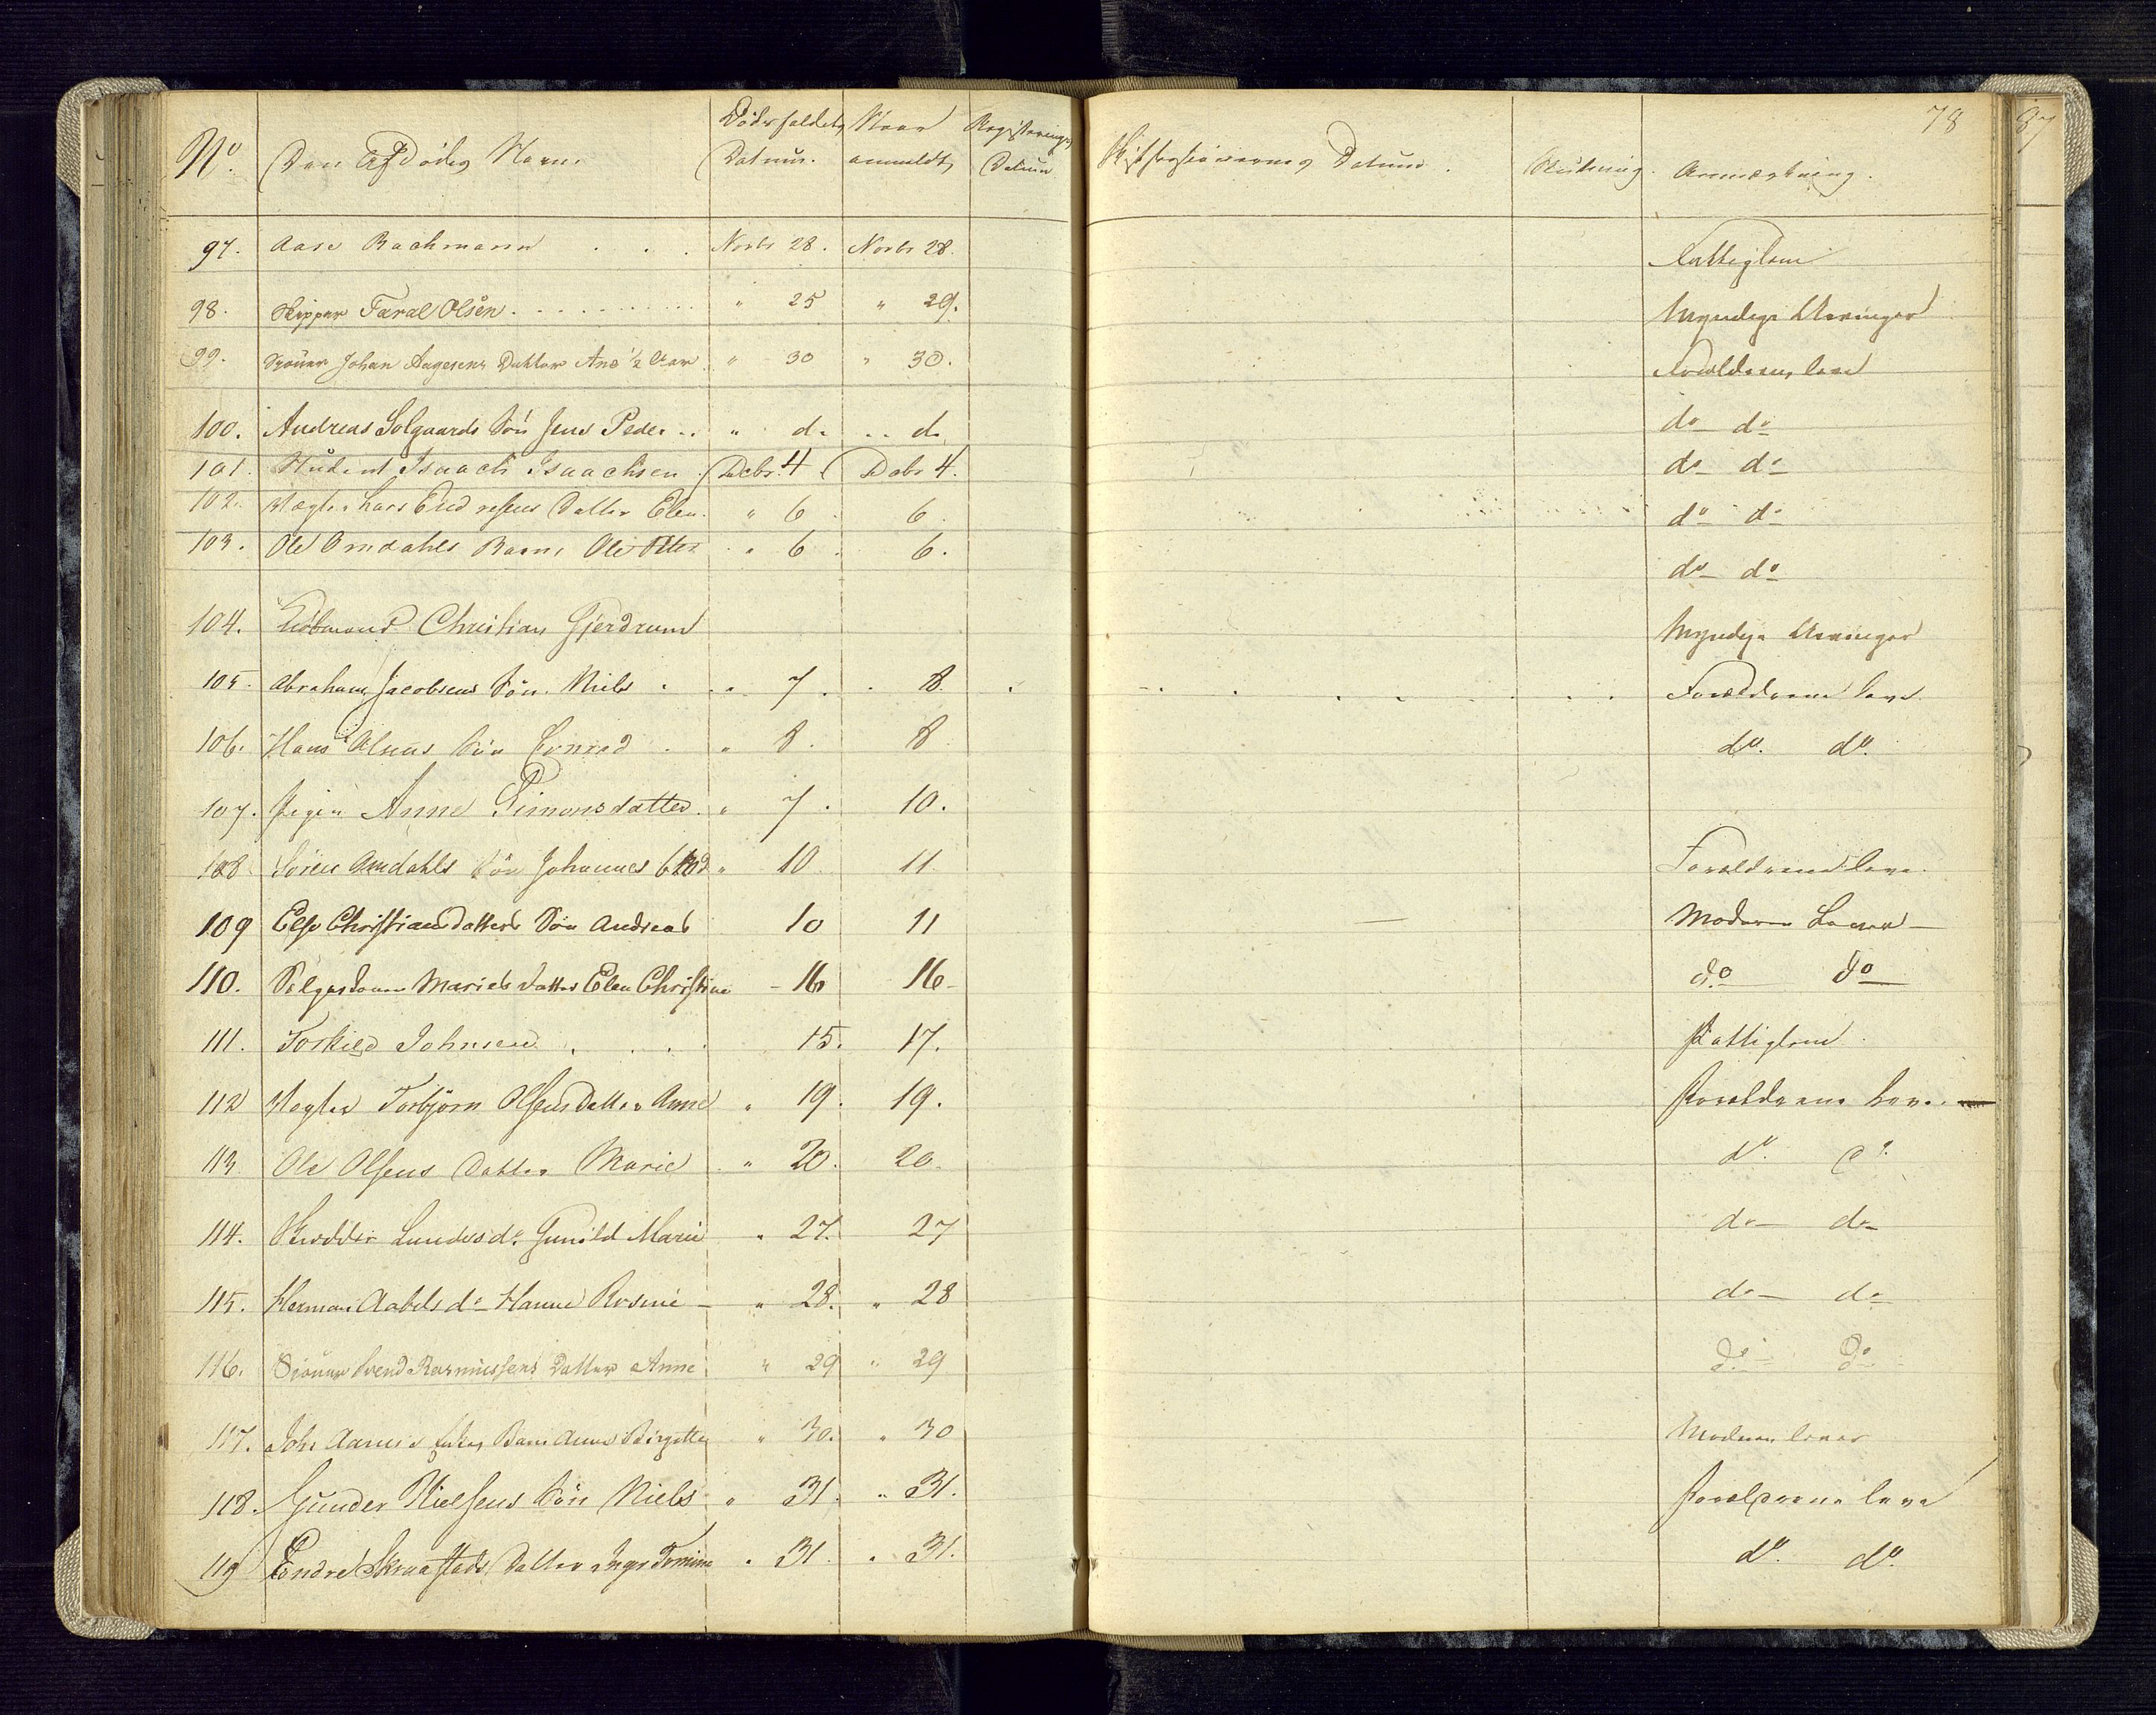 78
87
No. Den Afdødes Navn. Dødsfaldets Datum. Naar anmeldt, Registerings Datum Datum. Slutning. Anmærkning.
97. Aase Bachmann . . . Novbr 28. Novbr 28. Fattiglem
98. Skipper Taral Olsen . . . . " 25 " 29. Myndige Arvinger
99. Johan Aagesens Datter Ane ½ Aar " 30 " 30. Forældrene leve
100. Andreas Solgaards Søn Jens Peder .. " do .. do do do
101. Student Isaach Isaachsen . Decbr. 4 Decbr 4. do do
102. Vægter Lars Endresens Datter Elen. " 6 . 6. do do
103. Ole Omdahls Barn, Ole . " 6. 6. do do
104. Kiøbmand Christian Gjerdrum Myndige Arvinger
105. Abraham Jacobsens Søn Niels . . " 7. . 8. Forældrene leve
106. Hans Olsens Søn Conrad . " 8. 8. do. do.
107. Pigen Anne Simonsdatter. " 7. 10.
108 Søren Omdahls Søn Johannes " 10 11. Forældrene leve.
109 Else Christiansdatters Søn Andreas 10 11 — Moderen Lever —
110. Maries Datter Elen Christine - 16 16 - do do
111. Torkild Johnsen . . . . 15. 17. Fattiglem.
112 Vægter Torbjörn Olsens Datter Anne " 19. 19. Forældrene leve.
113. Ole Olsens Datter Marie . " 20. 20. do. do.
114. Skrædder Lundes do. Gunild Marie " 27. 27 do do
115. Herman Aabels do Hanne Rosine — " 28. " 28 do do
116. Svend Rasmussens Datter Anne " 29 " 29 do do
117. Barn Anne Birgitte " 30. " 30 Moderen lever
118. Gunder Nielsens Søn Niels " 31. " 31. Forældrene leve
119 Endre Skraastads Datter Inger Tomine " 31. " 31. do. do.